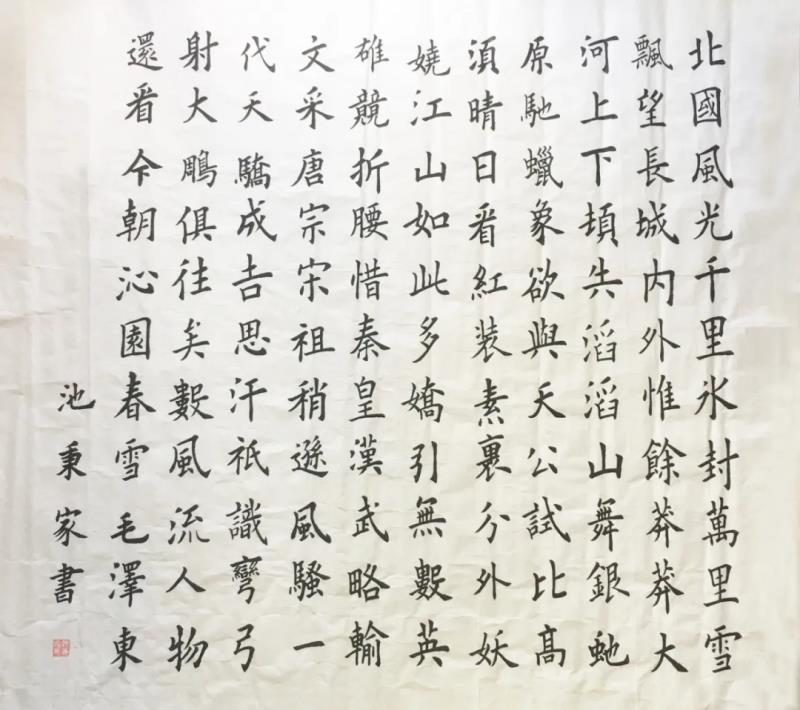 北國風光千里氷封萬里雪
飄望長城内外惟餘莽莽大
河上下頓失滔滔山舞銀虵
原馳蠟象欲與天公試比髙
須晴日看紅装素裹分外妖
嬈江山如此多嬌引無數英
雄競折腰惜秦皇漢武略輸
文采唐宗宋祖稍遜風騷一
代天驕成吉思汗祇識彎弓
射大鵰俱往矣數風流人物
還看今朝沁園春雪毛澤東
池秉家書